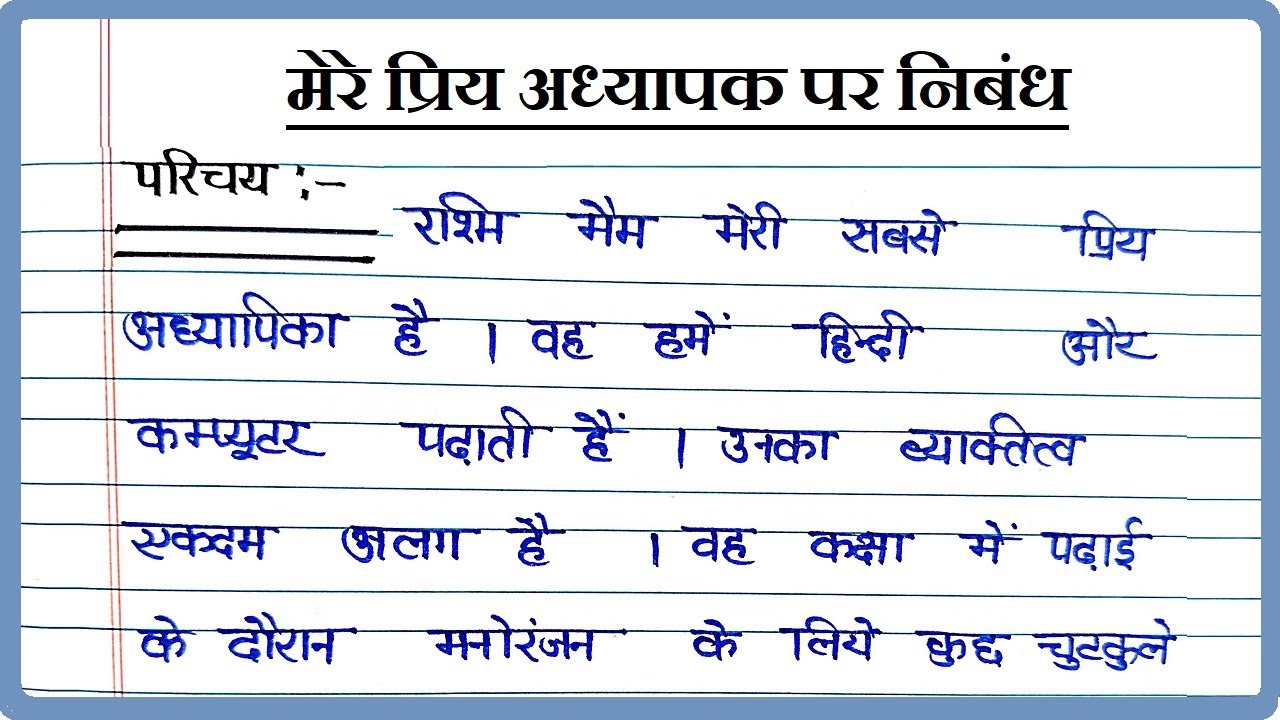 मेरे प्रिय अध्यापक पर निबंध
परिचय :-
रश्मि मैम मेरी सबसे प्रिय
अध्यापिका है । वह हमें हिन्दी और
कम्प्यूटर पढ़ाती हैं । उनका व्यक्तित्व
एकदम अलग है । वह कक्षा में पढ़ाई
के दौरान मनोरंजन के लिये कुछ चुटकुले